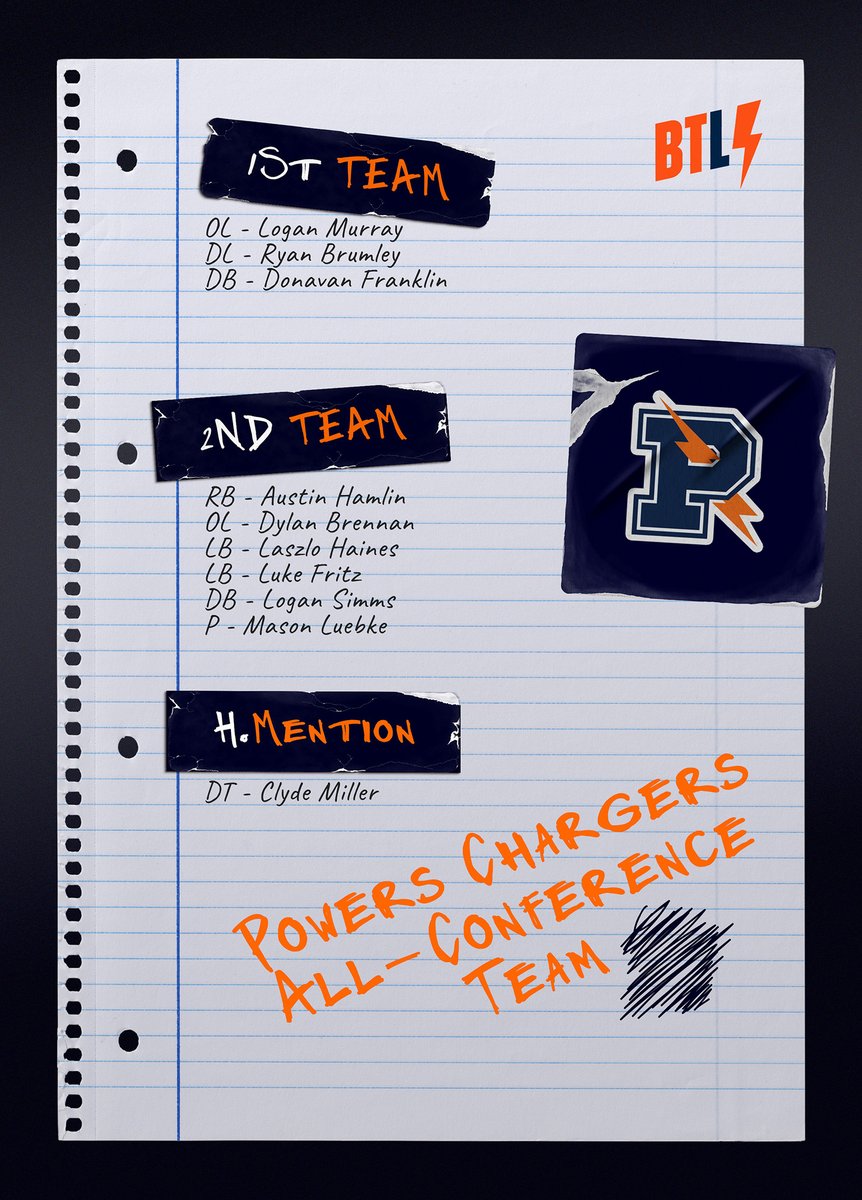 BTL
1ST TEAM
OL - Logan Murray
DL - Ryan Brumley
DB - Donavan Franklin
P
2ND TEAM
RB - Austin Hamlin
OL - Dylan Brennan
LB - Laszlo Haines
LB - Luke Fritz
DB - Logan Simms
P - Mason Luebke
H. MENTION
DT - Clyde Miller
POWERS CHARGERS
ALL-CONFERENCE
TEAM